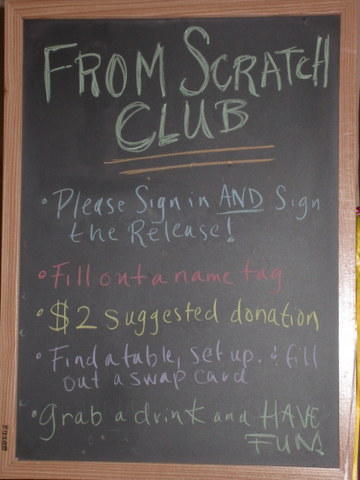 FROM SCRATCH
CLUB
• Please Sign in AND Sign
the Release!
• Fill out a name tag
• $2 suggested donation
• Find a table, set up. & fill
out a swap card
• Grab a drink and HAVE
FUN.